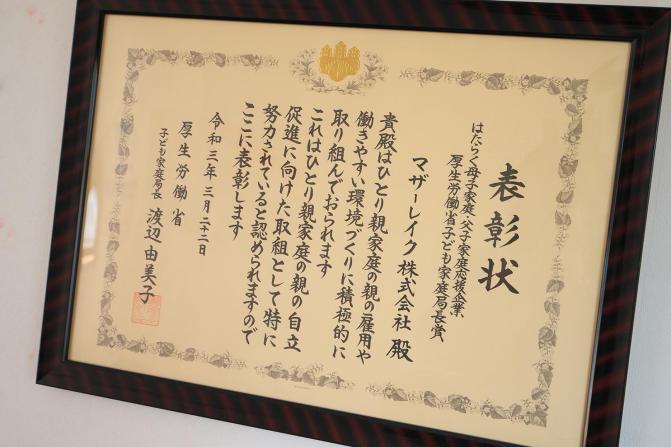 表彰状
はたらく母子家庭・父子家庭応援企業
厚生労働省子ども家庭局長賞
マザーレイク株式会社 殿
貴殿はひとり親家庭の親の雇用や
働きやすい環境づくりに積極的に
取り組んでおられます
これはひとり親家庭の親の自立
促進に向けた取組として特に
努力されていると認められますので
ここに表彰します
令和三年三月二十二日
厚生労働省
子ども家庭局長 渡辺由美子